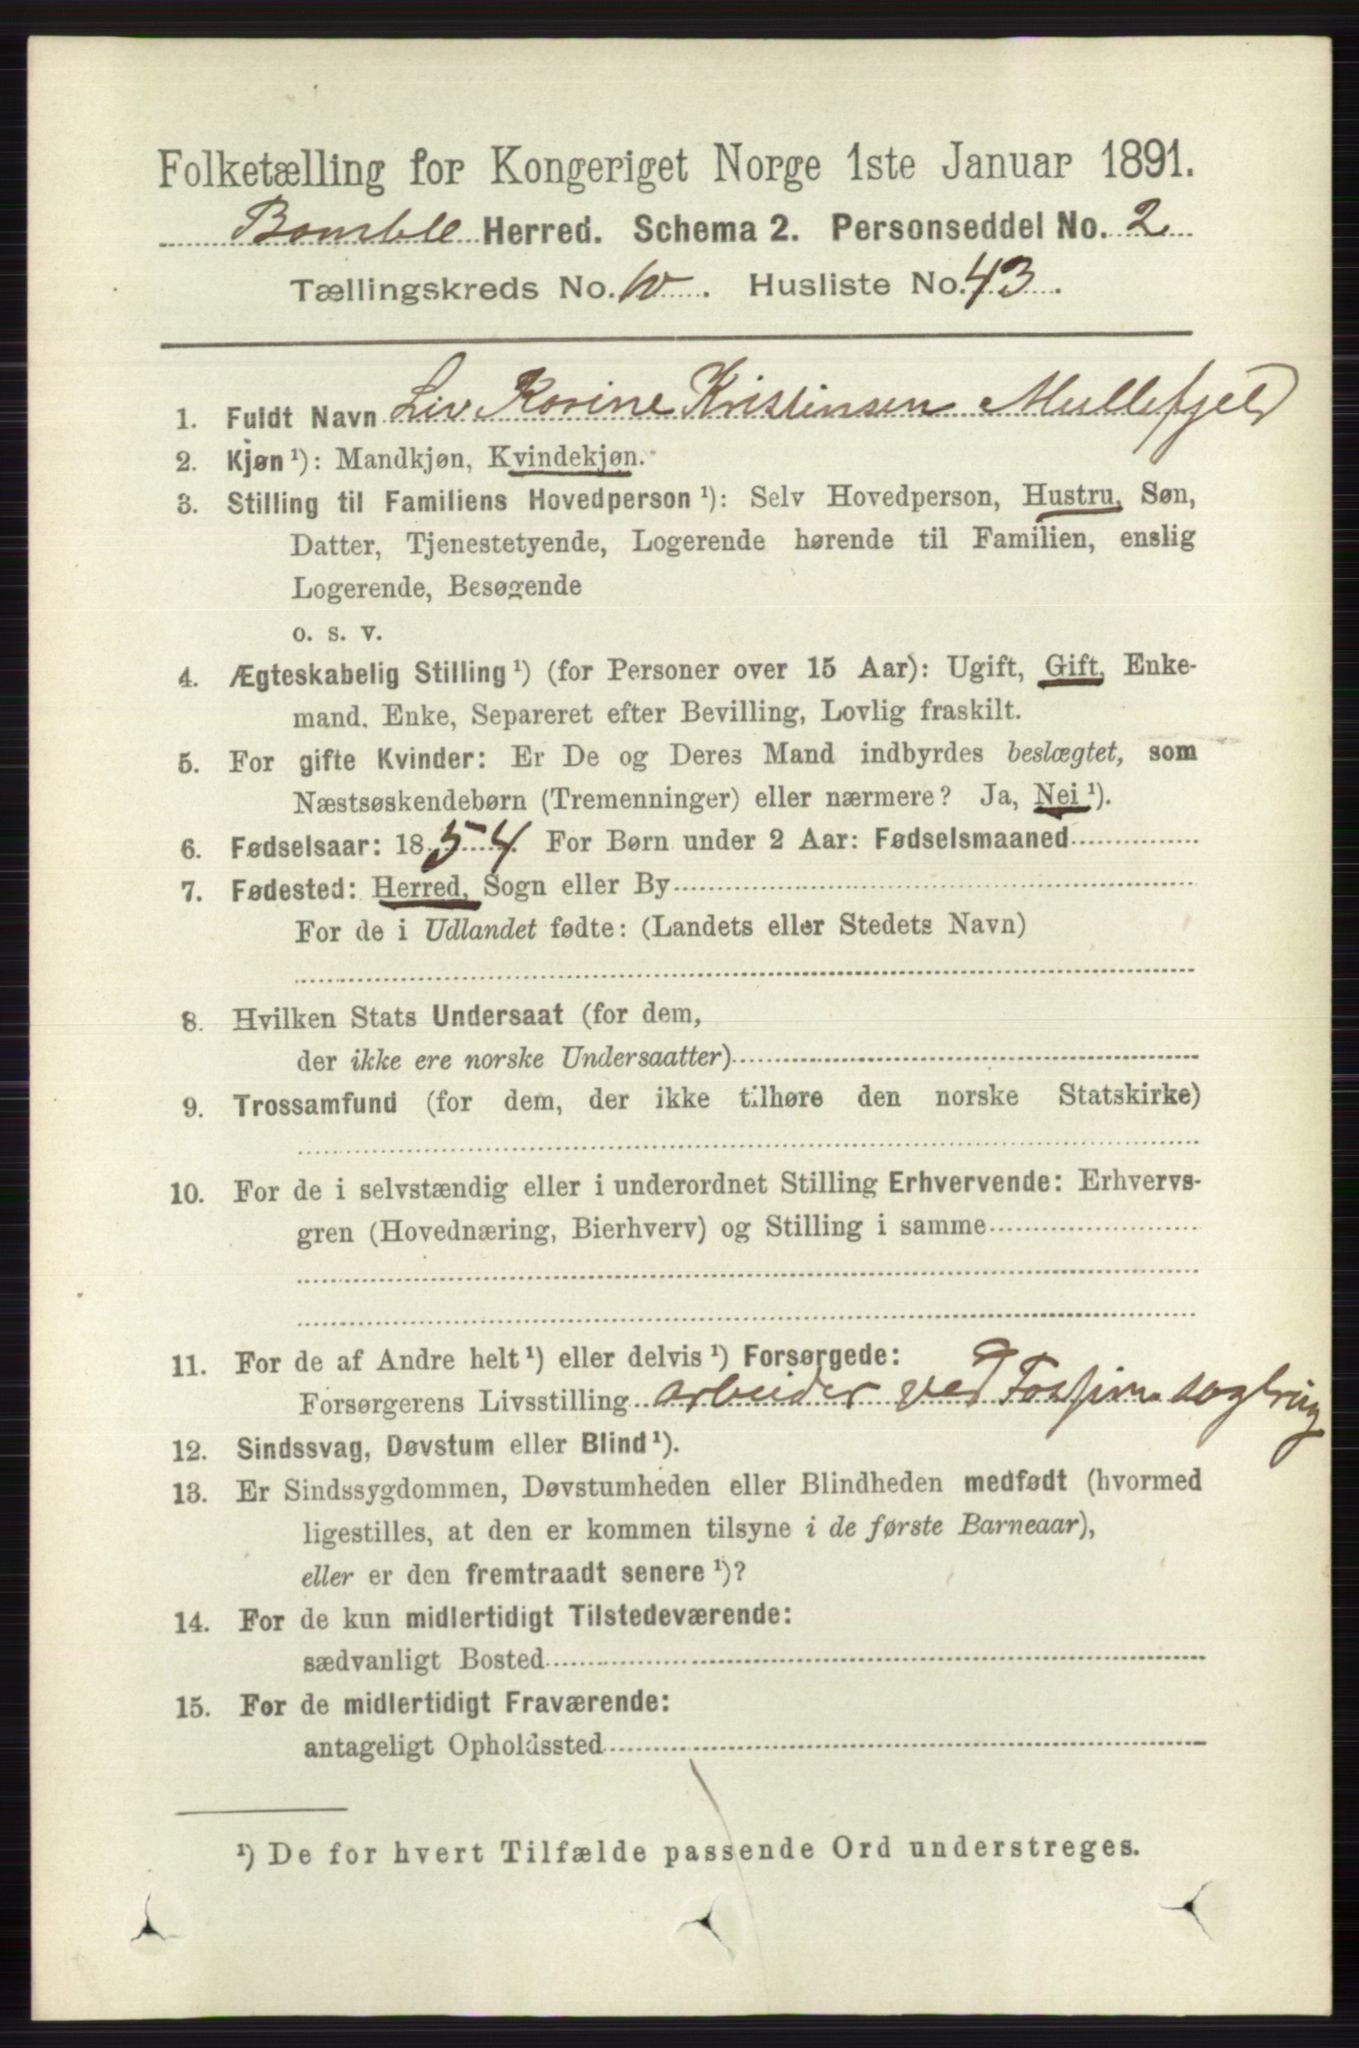 Folketælling for Kongeriget Norge 1ste Januar 1891.
Bamble Herred. Schema 2. Personseddel No. 2
Tællingskreds No. 10. Husliste No. 43.
1. Fuldt Navn Liv Karine Kristinsen Mullefjeld
2. Kjøn ¹): Mandkjøn, Kvindekjøn.
3. Stilling til Familiens Hovedperson ¹): Selv Hovedperson, Hustru, Søn,
Datter, Tjenestetyende, Logerende hørende til Familien, enslig
Logerende, Besøgende
o. s. v.
4. Ægteskabelig Stilling ¹) (for Personer over 15 Aar): Ugift, Gift, Enke-
mand, Enke, Separeret efter Bevilling, Lovlig fraskilt.
5. For gifte Kvinder: Er De og Deres Mand indbyrdes beslægtet, som
Næstsøskendebørn (Tremenninger) eller nærmere? Ja, Nei ¹).
6. Fødselsaar: 1854. For Børn under 2 Aar: Fødselsmaaned
7. Fødested: Herred, Sogn eller By
For de i Udlandet fødte: (Landets eller Stedets Navn)
8. Hvilken Stats Undersaat (for dem,
der ikke ere norske Undersaatter)
9. Trossamfund (for dem, der ikke tilhøre den norske Statskirke)
10. For de i selvstændig eller i underordnet Stilling Erhvervende: Erhvervs-
gren (Hovednæring, Bierhverv) og Stilling i samme
11. For de af Andre helt ¹) eller delvis ¹) Forsørgede:
Forsørgerens Livsstilling arbeider ved
12. Sindssvag, Døvstum eller Blind ¹).
13. Er Sindssygdommen, Døvstumheden eller Blindheden medfødt (hvormed
ligestilles, at den er kommen tilsyne i de første Barneaar),
eller er den fremtraadt senere ¹)?
14. For de kun midlertidigt Tilstedeværende:
sædvanligt Bosted
15. For de midlertidigt Fraværende:
antageligt Opholdssted
¹) De for hvert Tilfælde passende Ord understreges.